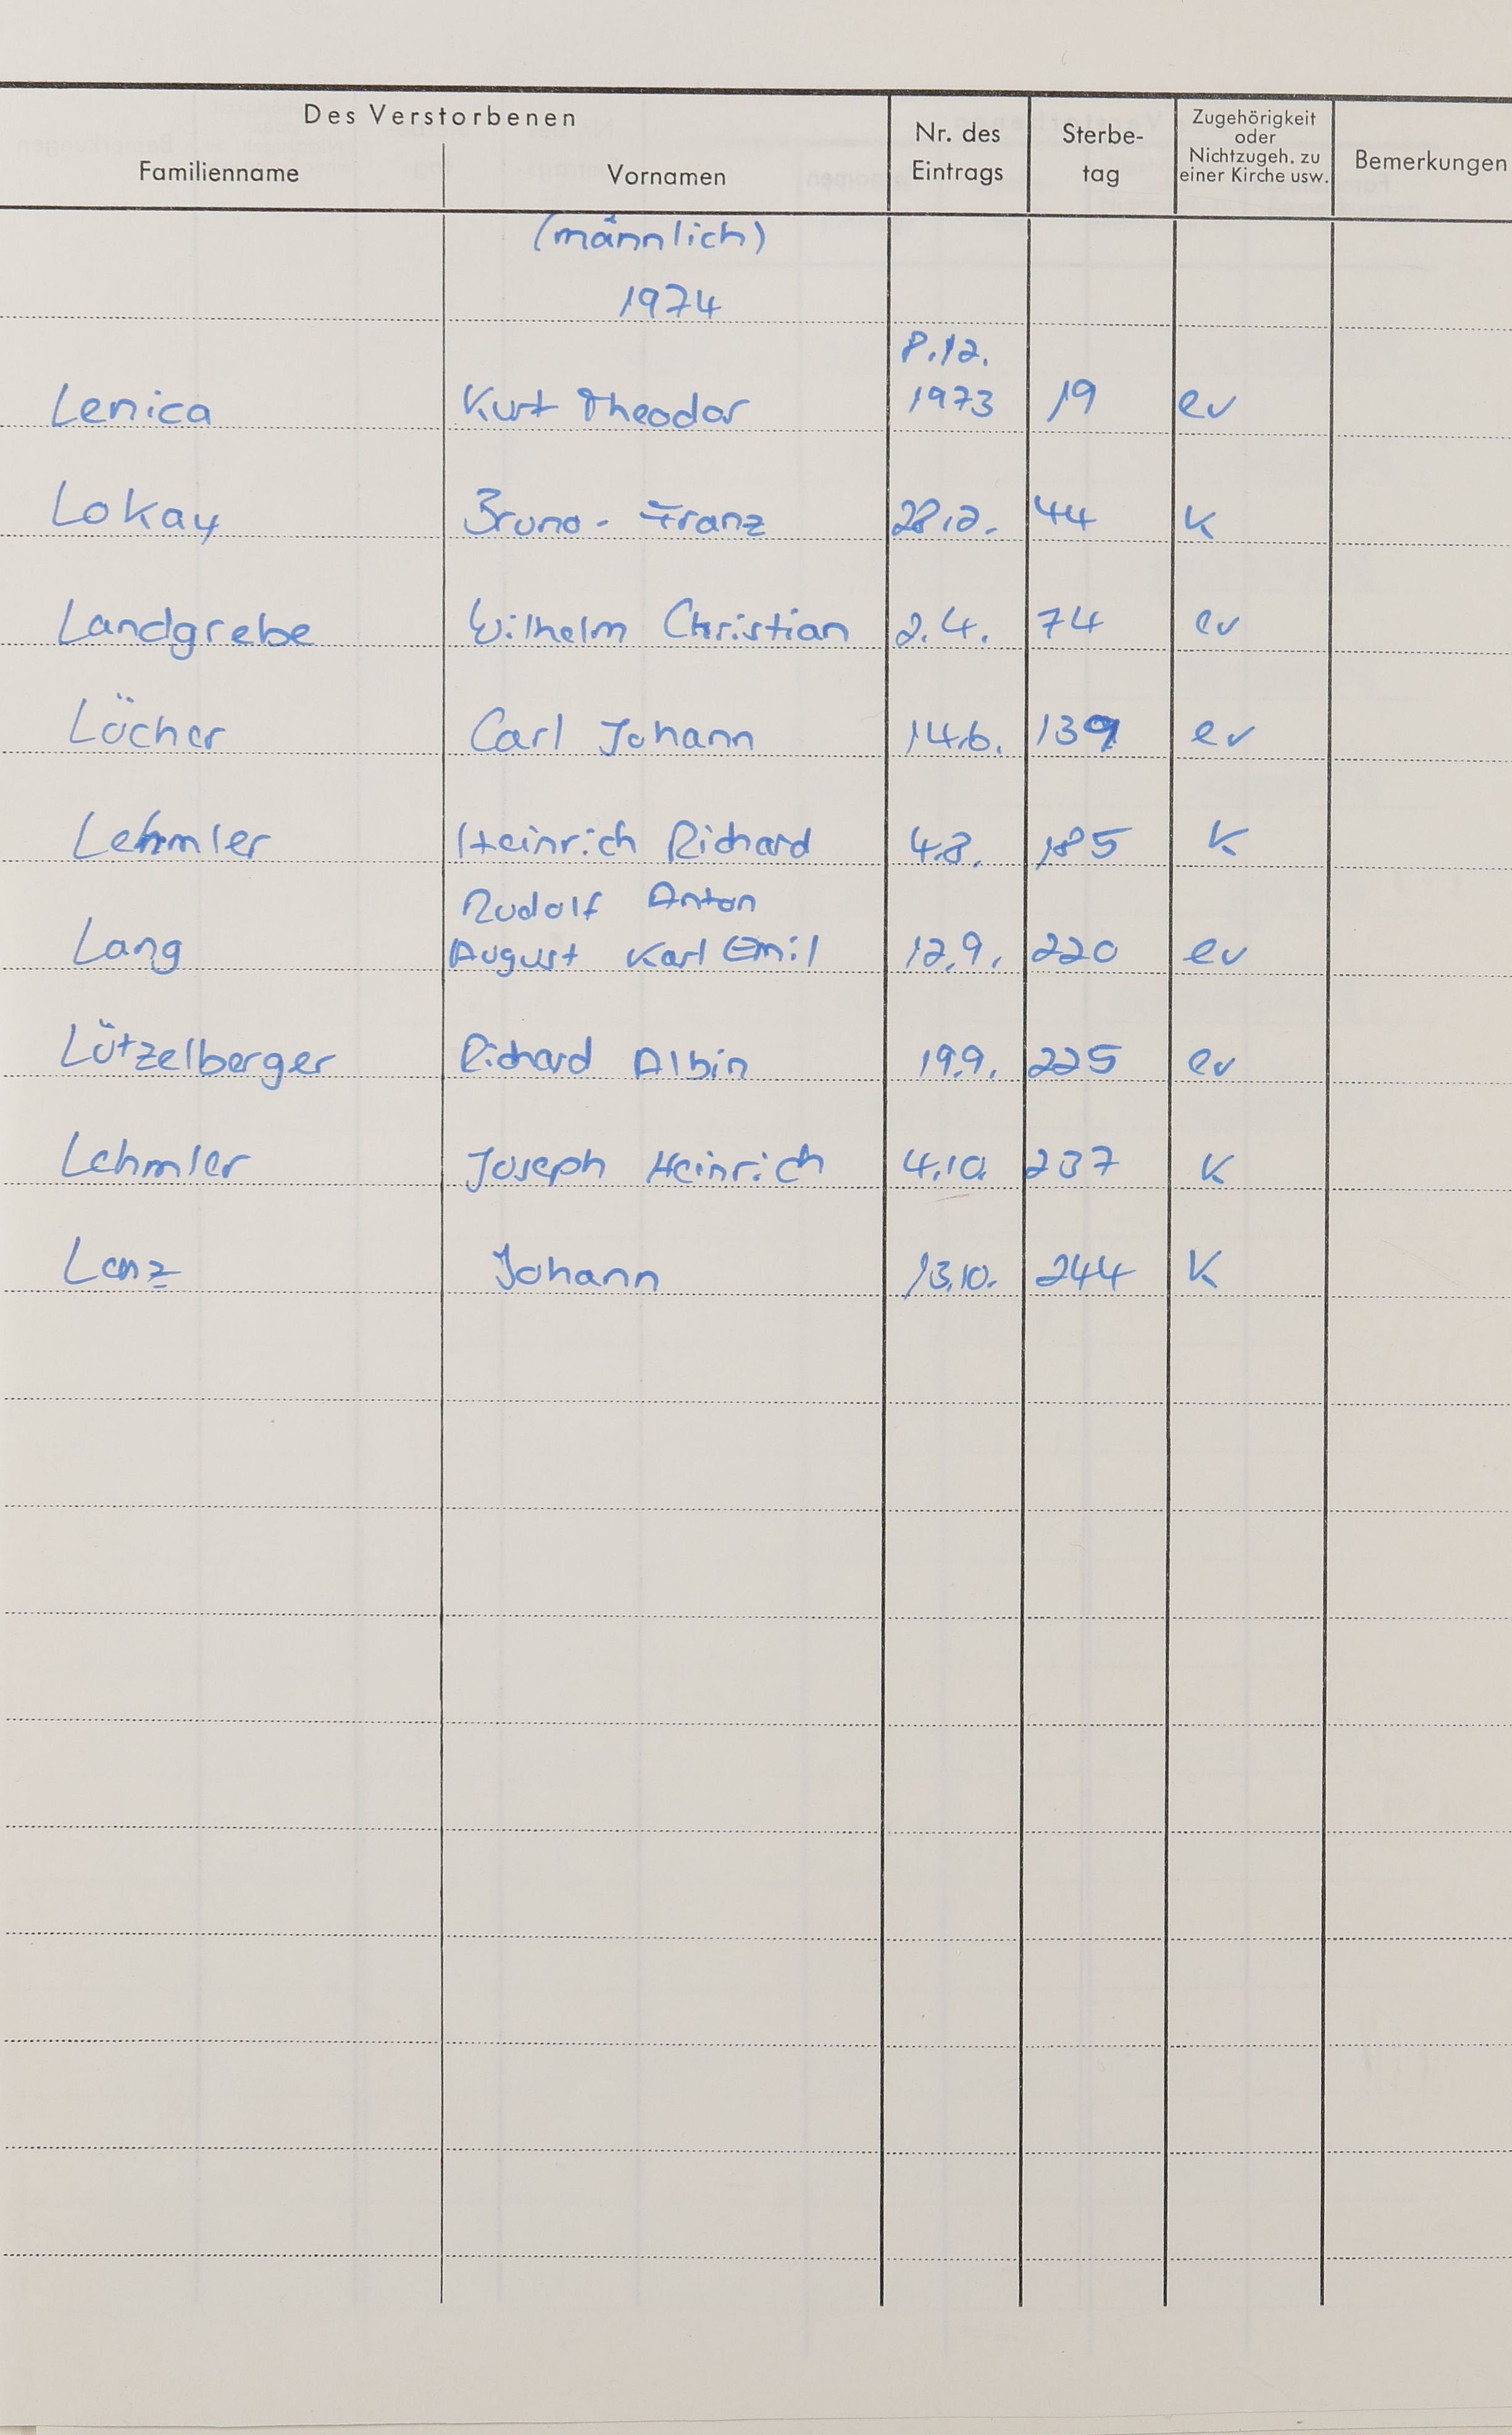 Des Verstorbenen
Familienname Vornamen Nr. des Eintrags Sterbe-tag Zugehörigkeit oder Nichtzugeh. zu einer Kirche usw. Bemerkungen
(männlich)
1974
8.12.
Lenica Kurt Theodor 1973 19 ev
Lokay Bruno - Franz 28.2. 44 K
Landgrebe Wilhelm Christian 2.4. 74 ev
Löcher Carl Johann 14.6. 139 ev
Lehmler Heinrich Richard 4.8. 185 K
Rudolf Anton
Lang August Karl Emil 12.9. 220 ev
Lützelberger Richard Albin 19.9. 225 ev
Lehmler Joseph Heinrich 4.10. 237 K
Lenz Johann 13.10. 244 K